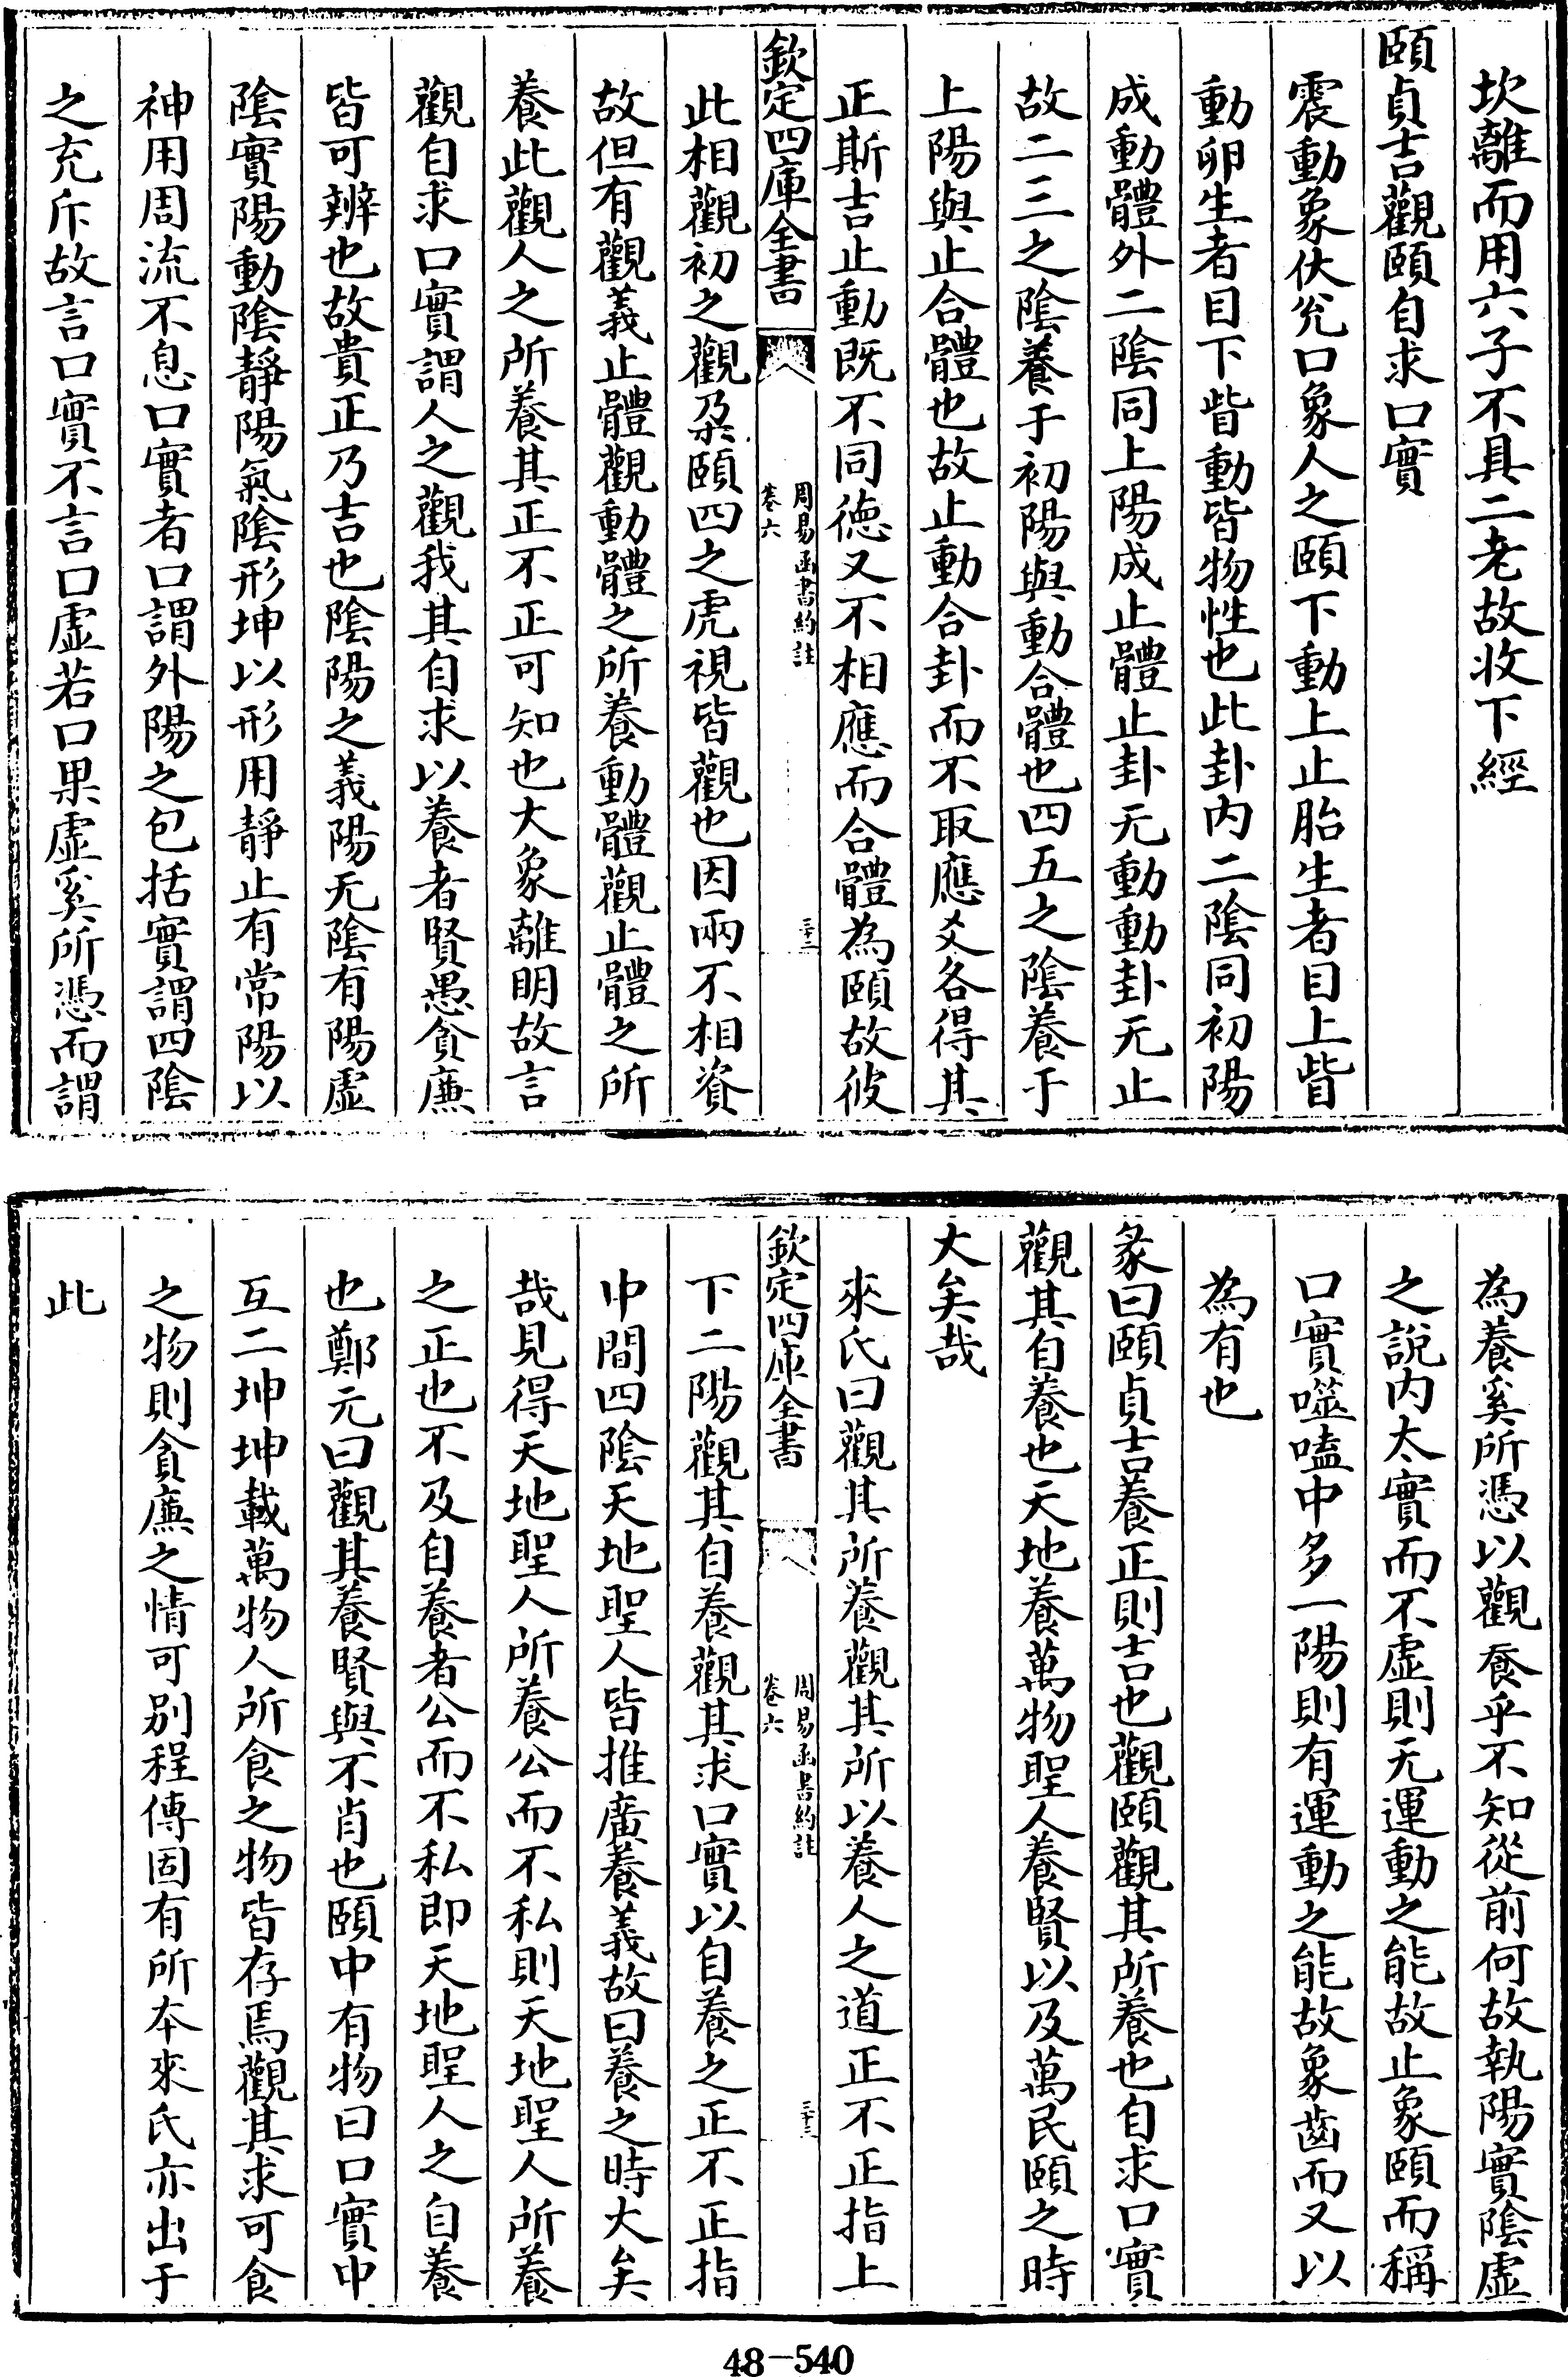 坎離而用六子不具二老故收下經
頤貞吉觀頤自求口實
震動象伏兊口象人之頤下動上止胎生者目上眥
動卵生者目下眥動皆物性也此卦内二陰同初陽
成動體外二陰同上陽成止體止卦无動動卦无止
故二三之陰養于初陽與動合體也四五之陰養于
上陽與止合體也故止動合卦而不取應爻各得其
正斯吉止動既不同德又不相應而合體為頤故彼
欽定四庫全書
周易函書約註
卷六
三十二
此相觀初之觀朶頤四之虎視皆觀也因兩不相資
故但有觀義止體觀動體之所養動體觀止體之所
養此觀人之所養其正不正可知也大象離明故言
觀自求口實謂人之觀我其自求以養者賢愚貪廉
皆可辨也故貴正乃吉也陰陽之義陽无陰有陽虛
陰實陽動陰靜陽氣陰形坤以形用靜止有常陽以
神用周流不息口實者口謂外陽之包括實謂四陰
之充斥故言口實不言口虛若口果虛奚所憑而謂
為養奚所憑以觀養乎不知從前何故執陽實陰虛
之說内太實而不虛則无運動之能故止象頤而稱
口實噬嗑中多一陽則有運動之能故象齒而又以
為有也
彖曰頤貞吉養正則吉也觀頤觀其所養也自求口實
觀其自養也天地養萬物聖人養賢以及萬民頤之時
大矣哉
來氏曰觀其所養觀其所以養人之道正不正指上
欽定四庫全書
周易函書約註
卷六
三十三
下二陽觀其自養觀其求口實以自養之正不正指
中間四陰天地聖人皆推廣養義故曰養之時大矣
哉見得天地聖人所養公而不私則天地聖人所養
之正也不及自養者公而不私即天地聖人之自養
也鄭元曰觀其養賢與不肖也頤中有物曰口實中
互二坤坤載萬物人所食之物皆存焉觀其求可食
之物則貪廉之情可别程傳固有所本來氏亦出于
此
48-540